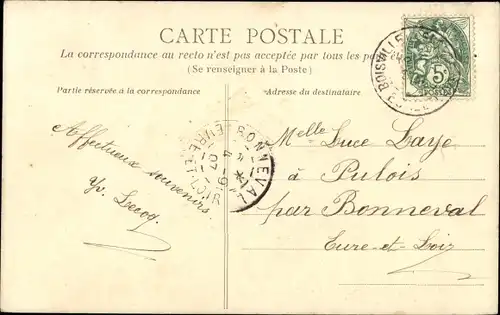 CARTE POSTALE
La correspondance au recto n'est pas acceptée par tous les
(Se renseigner à la Poste)
Partie réservée à la correspondance
Adresse du destinataire
Affectueux souvenirs.
Yv. Lecoq.
Melle Luce Laye
à Pulois
par Bonneval
Eure-et-Loir
BONNEVAL
EURE-ET-LOIR
BOISVILLE
5c
POSTES